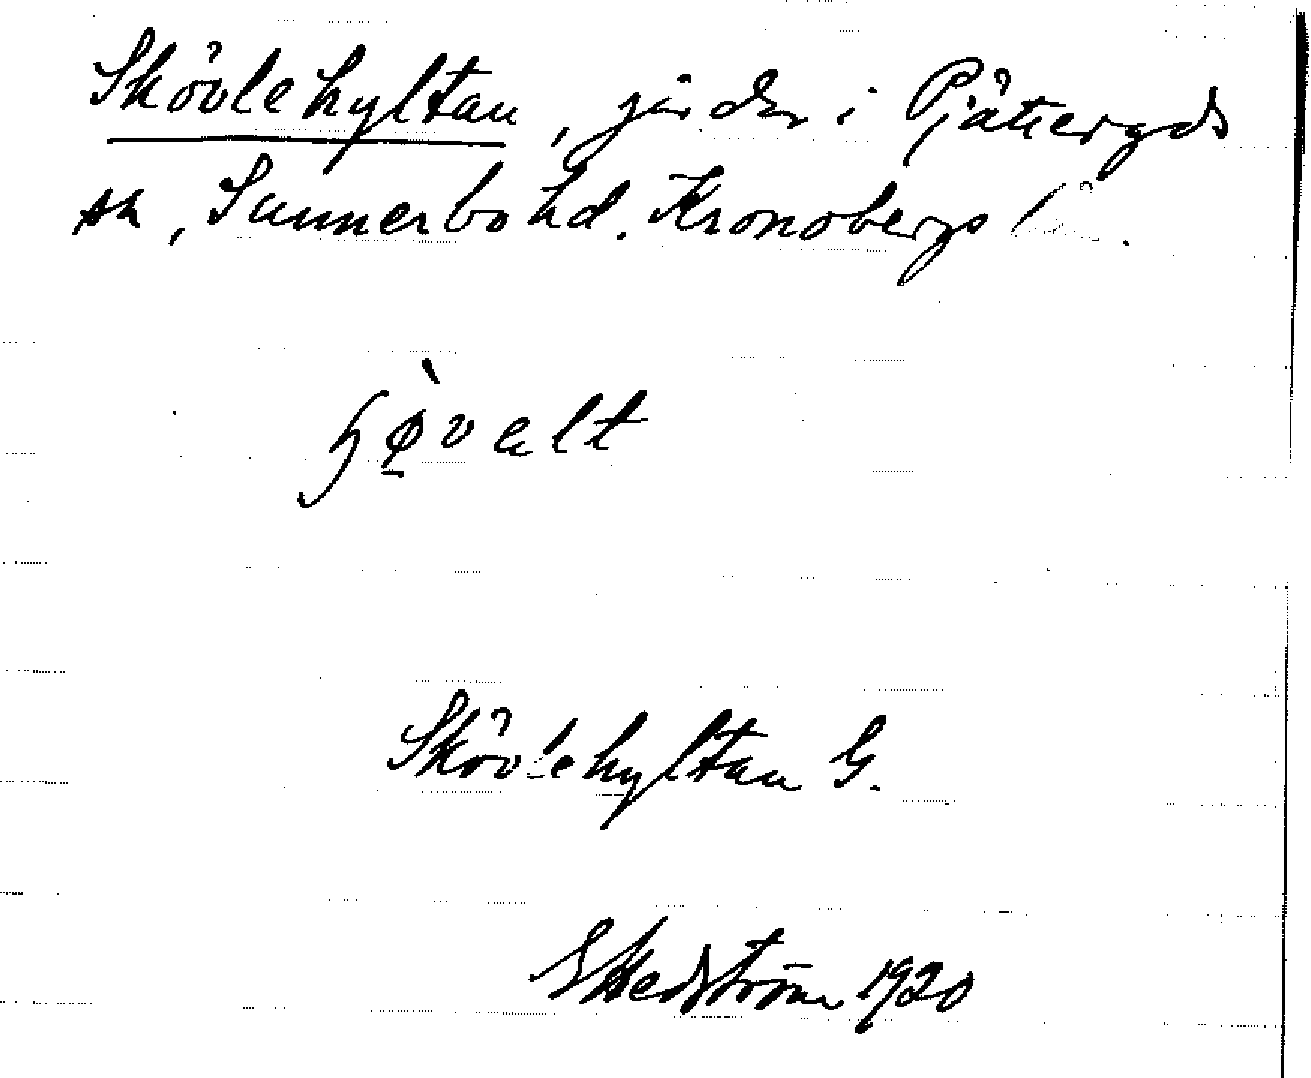 Skövlehyltan, gården i Pjätteryds
sn, Sunnerbo hd. Kronobergs län.
ɧø̀valt
Skövlehyltan G.
Hedström 1920